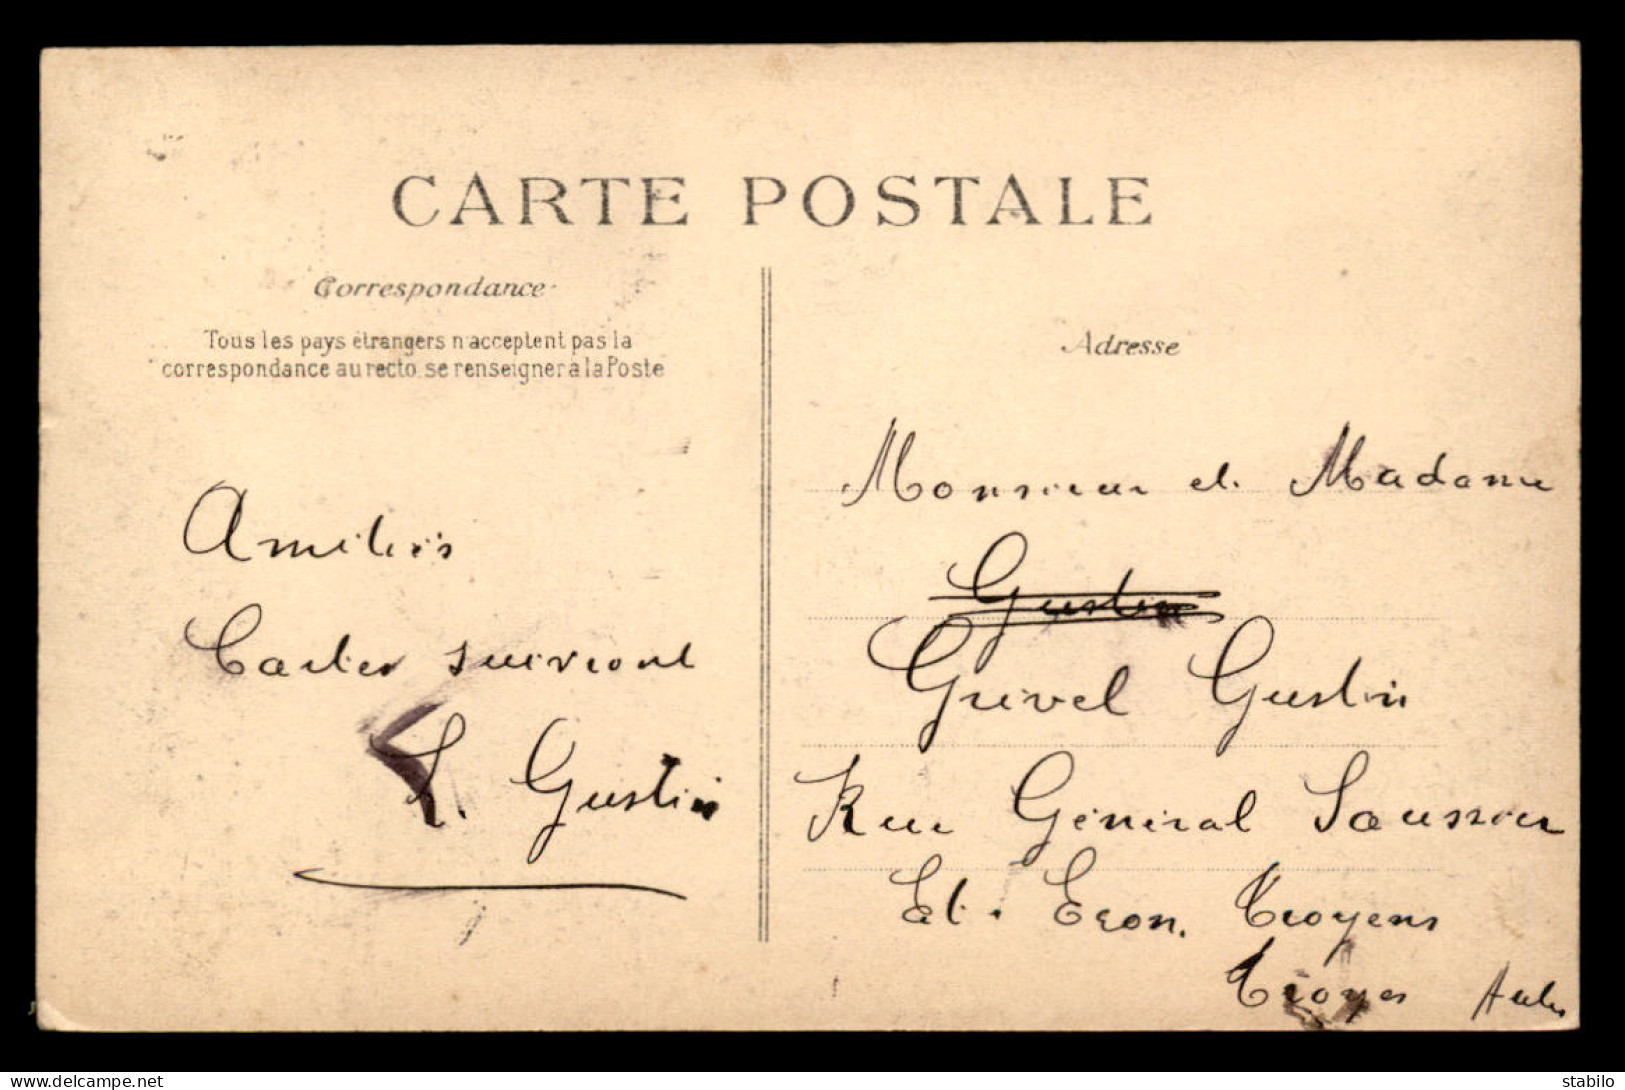 CARTE POSTALE
Correspondance
Tous les pays étrangers n'acceptent pas la
correspondance au recto se renseigner à la Poste
Amitiés
Cartes suivront
L. Gustin
Adresse
Monsieur et Madame
Gustin
Grivel Gustin
Rue Général Saussier
Et. Econ. Troyens
Troyes Aube
www.delcampe.net
stabilo